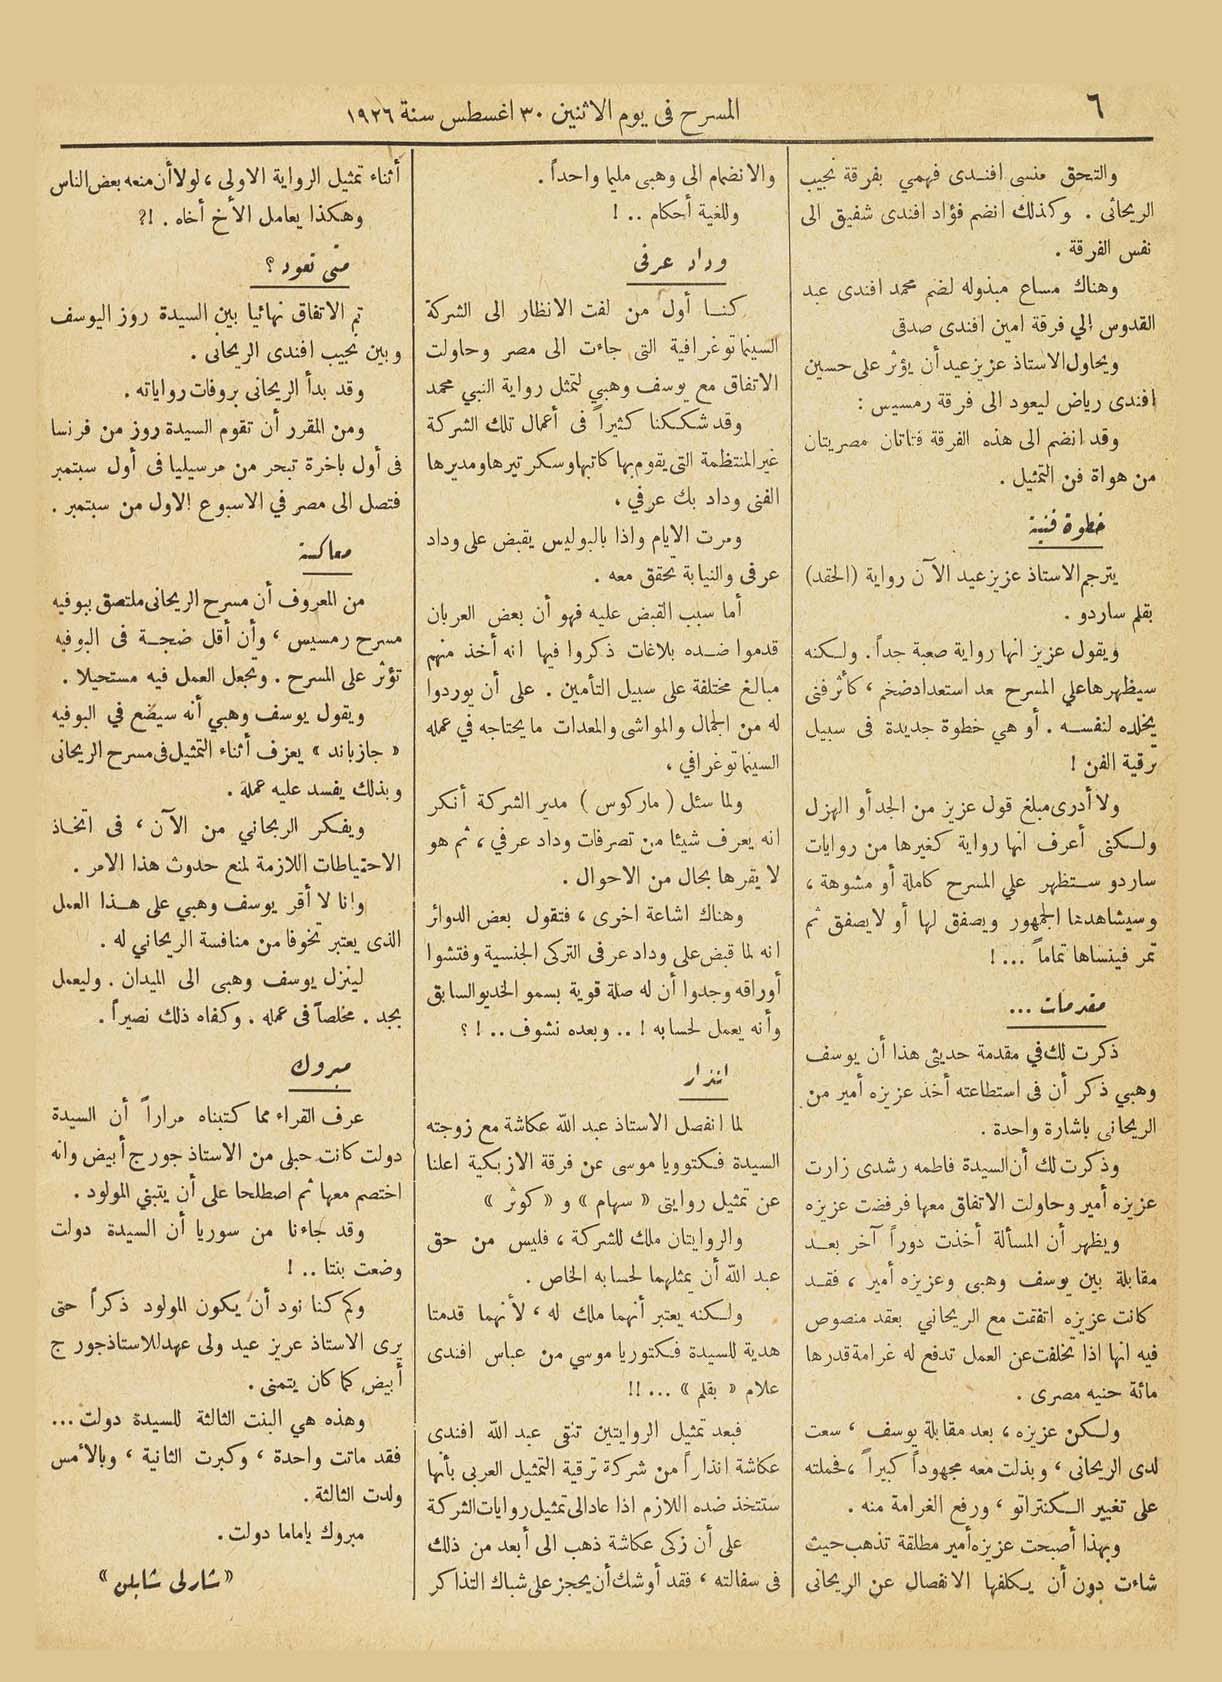 ٦
المسرح فى يوم الاثنين ٣٠ اغسطس سنة ١٩٢٦
والتحق منسى افندى فهمي بفرقة نجيب
الريحانى . وكذلك انضم فؤاد افندى شفيق الى
نفس الفرقة .
وهناك مساع مبذوله لضم محمد افندى عبد
القدوس إلي فرقة امين افندى صدقى
ويحاول الاستاذ عزيز عيد أن يؤثر على حسين
افندى رياض ليعود الى فرقة رمسيس :
وقد انضم الى هذه الفرقة فتاتان مصريتان
من هواة فن التمثيل .
خطوة فنية
يترجم الاستاذ عزيز عيد الآن رواية (الحقد)
بقلم ساردو .
ويقول عزيز انها رواية صعبة جداً . ولكنه
سيظهرها علي المسرح بعد استعداد ضخم ، كأثر فنى
يخلده لنفسه . أو هي خطوة جديدة فى سبيل
ترقية الفن !
ولا أدرى مبلغ قول عزيز من الجد أو الهزل
ولكنى أعرف انها رواية كغيرها من روايات
ساردو ستظهر علي المسرح كاملة أو مشوهة ،
وسيشاهدها الجمهور ويصفق لها أو لا يصفق ثم
تمر فينساها تماماً ... !
مقدمات ...
ذكرت لك في مقدمة حديثى هذا أن يوسف
وهبي ذكر أن فى استطاعته أخذ عزيزه أمير من
الريحانى باشارة واحدة .
وذكرت لك أن السيدة فاطمه رشدى زارت
عزيزه أمير وحاولت الاتفاق معها فرفضت عزيزه
ويظهر أن المسألة أخذت دوراً آخر بعد
مقابلة بين يوسف وهبى وعزيزه أمير ، فقد
كانت عزيزه اتفقت مع الريحاني بعقد منصوص
فيه انها اذا تخلفت عن العمل تدفع له غرامة قدرها
مائة جنيه مصرى .
ولكن عزيزه ، بعد مقابلة يوسف ، سعت
لدى الريحانى ، وبذلت معه مجهوداً كبيراً ، فحملته
على تغيير الكنتراتو ، ورفع الغرامة منه .
وبهذا أصبحت عزيزه أمير مطلقة تذهب حيث
شاءت دون أن يكلفها الانفصال عن الريحانى
والانضمام الى وهبى مليما واحداً .
وللغية أحكام .. !
وداد عرفى
كنا أول من لفت الانظار الى الشركة
السينماتوغرافية التى جاءت الى مصر وحاولت
الاتفاق مع يوسف وهبي لتمثل رواية النبي محمد
وقد شككنا كثيراً فى أعمال تلك الشركة
غير المنتظمة التى يقوم بها كاتبها وسكرتيرها ومديرها
الفنى وداد بك عرفي ،
ومرت الايام واذا بالبوليس يقبض على وداد
عرفى والنيابة تحقق معه .
أما سبب القبض عليه فهو أن بعض العربان
قدموا ضده بلاغات ذكروا فيها انه أخذ منهم
مبالغ مختلفة على سبيل التأمين . على أن يوردوا
له من الجمال والمواشى والمعدات ما يحتاجه في عمله
السينماتوغرافي ،
ولما سئل ( ماركوس ) مدير الشركة أنكر
انه يعرف شيئا من تصرفات وداد عرفي ، ثم هو
لا يقرها بحال من الاحوال .
وهناك اشاعة اخرى ، فتقول بعض الدوائر
انه لما قبض على وداد عرفى التركى الجنسية وفتشوا
أوراقه وجدوا أن له صلة قوية بسمو الخديو السابق
وأنه يعمل لحسابه ! .. وبعده نشوف .. ! ؟
انذار
لما انفصل الاستاذ عبد الله عكاشة مع زوجته
السيدة فكتوويا موسى عن فرقة الازبكية اعلنا
عن تمثيل روايتى « سهام » و « كوثر »
والروايتان ملك للشركة ، فليس من حق
عبد الله أن يمثلهما لحسابه الخاص .
ولكنه يعتبر أنهما ملك له ، لأنهما قدمتا
هدية للسيدة فكتوريا موسي من عباس افندى
علام « بقلم » ... !!
فبعد تمثيل الروايتين تنقى عبد الله افندى
عكاشة انذاراً من شركة ترقية التمثيل العربى بأنها
ستتخذ ضده اللازم اذا عاد الى تمثيل روايات الشركة
على أن زكى عكاشة ذهب الى أبعد من ذلك
فى سفالته ، فقد أوشك أن يحجز على شباك التذاكر
أثناء تمثيل الرواية الاولى ، لولا أن منعه بعض الناس
وهكذا يعامل الأخ أخاه . !؟
متى تعود ؟
تم الاتفاق نهائيا بين السيدة روز اليوسف
وبين نجيب افندى الريحانى .
وقد بدأ الريحانى بروفات رواياته .
ومن المقرر أن تقوم السيدة روز من فرنسا
فى أول باخرة تبحر من مرسيليا فى أول سبتمبر
فتصل الى مصر في الاسبوع الاول من سبتمبر .
معاكسة
من المعروف أن مسرح الريحانى ملتصق ببوفيه
مسرح رمسيس ، وأن أقل ضجة فى البوفيه
تؤثر على المسرح . وتجعل العمل فيه مستحيلا .
ويقول يوسف وهبي أنه سيضع في البوفيه
« جازباند » يعزف أثناء التمثيل فى مسرح الريحانى
وبذلك يفسد عليه عمله .
ويفكر الريحاني من الآن ، فى اتخاذ
الاحتياطات اللازمة لمنع حدوث هذا الامر .
وانا لا أقر يوسف وهبي على هذا العمل
الذى يعتبر تخوفا من منافسة الريحاني له .
لينزل يوسف وهبى الى الميدان . وليعمل
بجد . مخلصاً فى عمله . وكفاه ذلك نصيراً .
مبروك
عرف القراء مما كتبناه مراراً أن السيدة
دولت كانت حبلى من الاستاذ جورج أبيض وانه
اختصم معها ثم اصطلحا على أن يتبنى المولود .
وقد جاءنا من سوريا أن السيدة دولت
وضعت بنتا .. !
وكم كنا نود أن يكون المولود ذكراً حتى
يرى الاستاذ عريز عيد ولى عهد للاستاذ جور ج
أبيض كما كان يتمنى .
وهذه هي البنت الثالثة للسيدة دولت ...
فقد ماتت واحدة ، وكبرت الثانية ، وبالأمس
ولدت الثالثة .
مبروك ياماما دولت .
« شارلى شابلن »